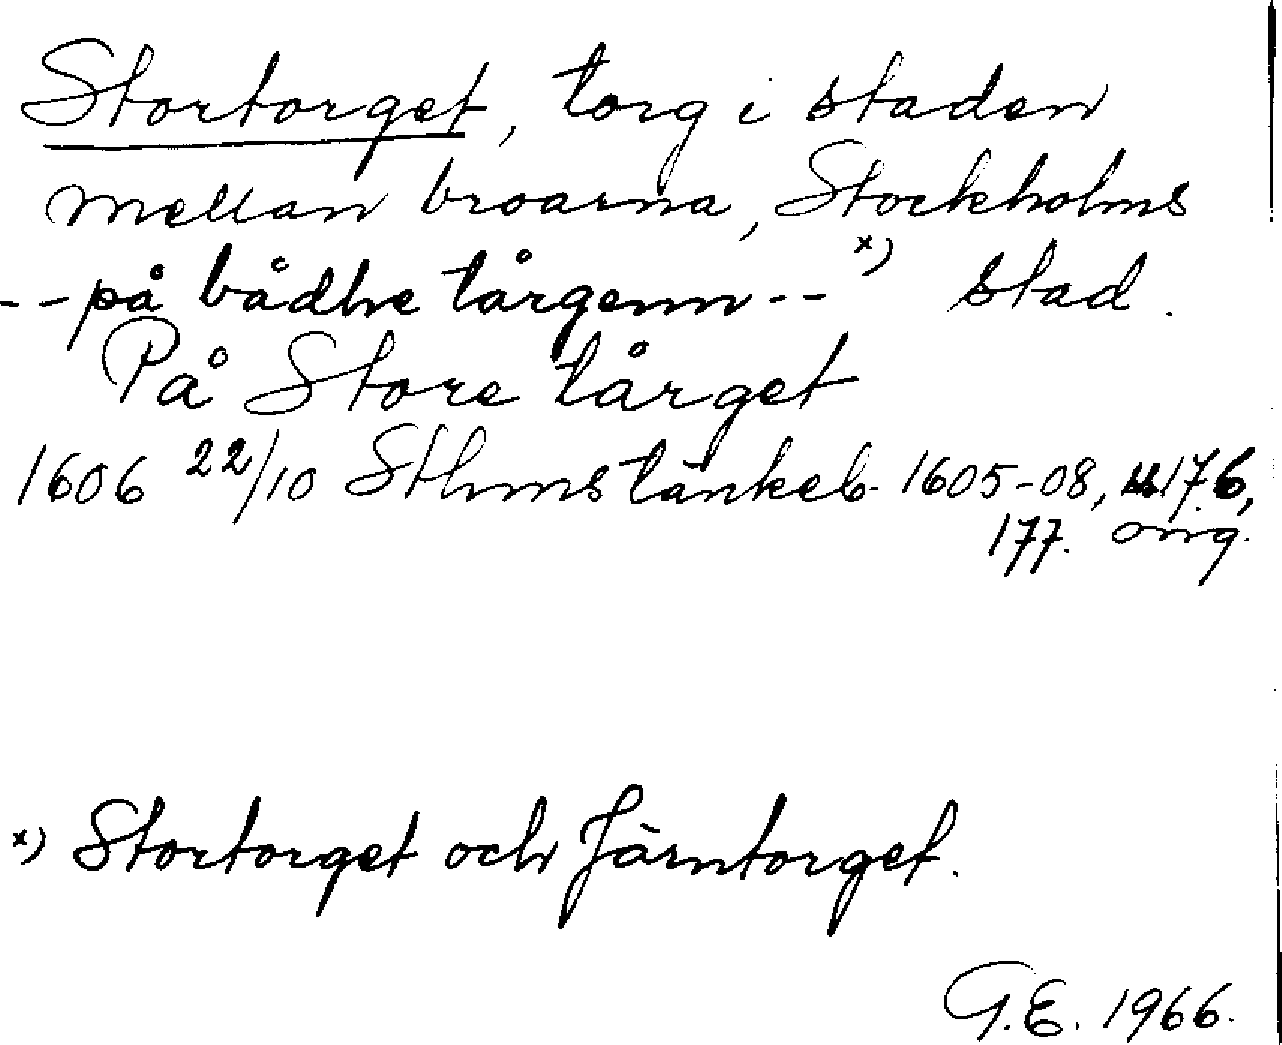 Stortorget, torg i staden
mellan broarna, Stockholms
stad.
--på bådhe tårgenn-- x)
På Store tårget
1606 22/10 Sthms tänkeb. 1605-08, s. 176,
177. orig.
x) Stortorget och Järntorget.
G.E. 1966.